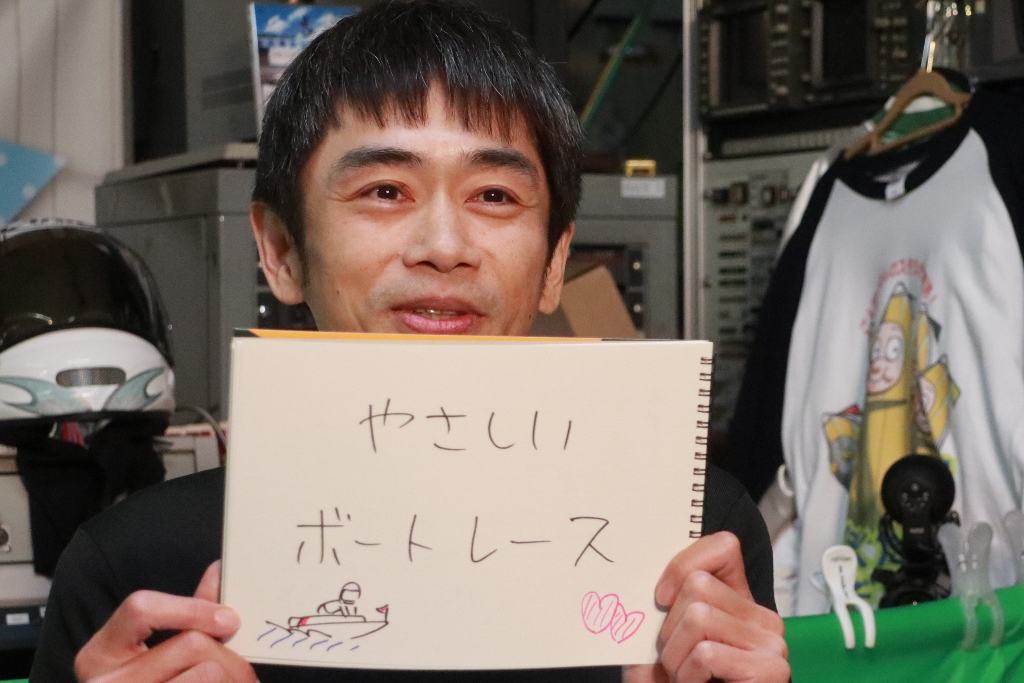 やさしい
ボートレース